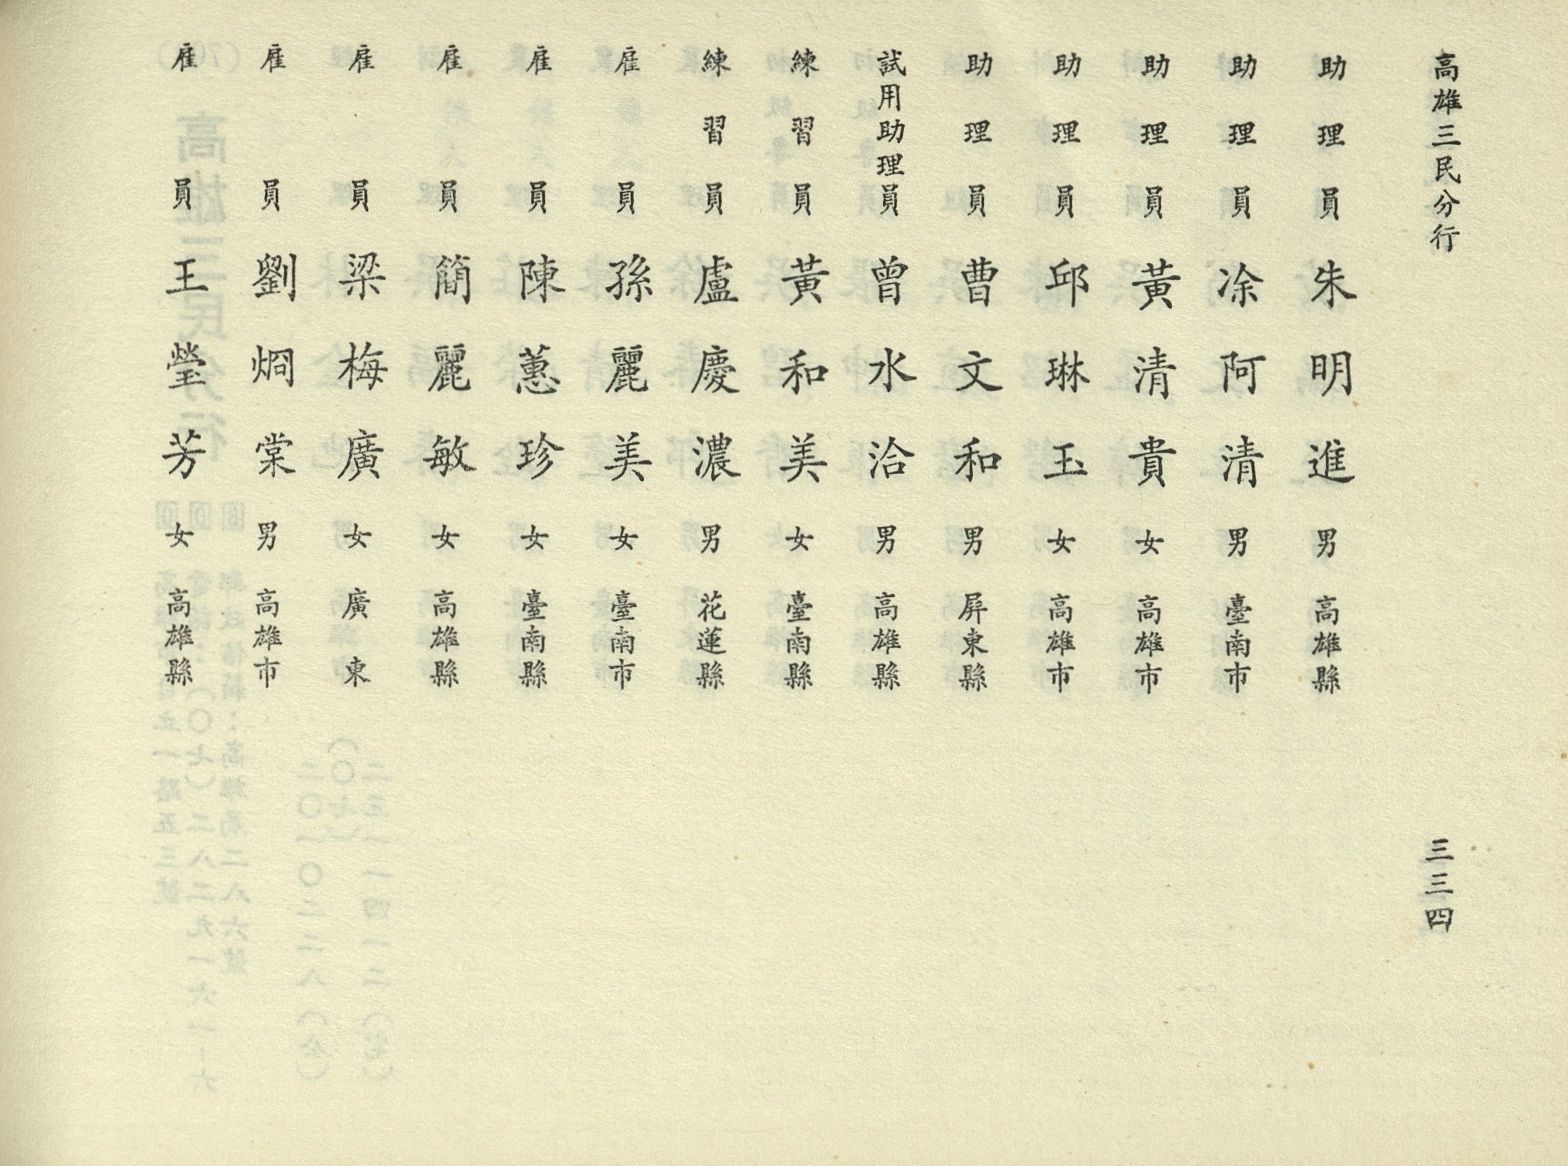 高雄三民分行
三三四
助理員 朱明進 男 高雄縣
助理員 凃阿清 男 臺南市
助理員 黃清貴 女 高雄市
助理員 邱琳玉 女 高雄市
助理員 曹文和 男 屏東縣
試用助理員 曾水洽 男 高雄縣
練習員 黃和美 女 臺南縣
練習員 盧慶濃 男 花蓮縣
雇員 孫麗美 女 臺南市
雇員 陳蕙珍 女 臺南縣
雇員 簡麗敏 女 高雄縣
雇員 梁梅廣 女 廣東
雇員 劉烱棠 男 高雄市
雇員 王瑩芳 女 高雄縣